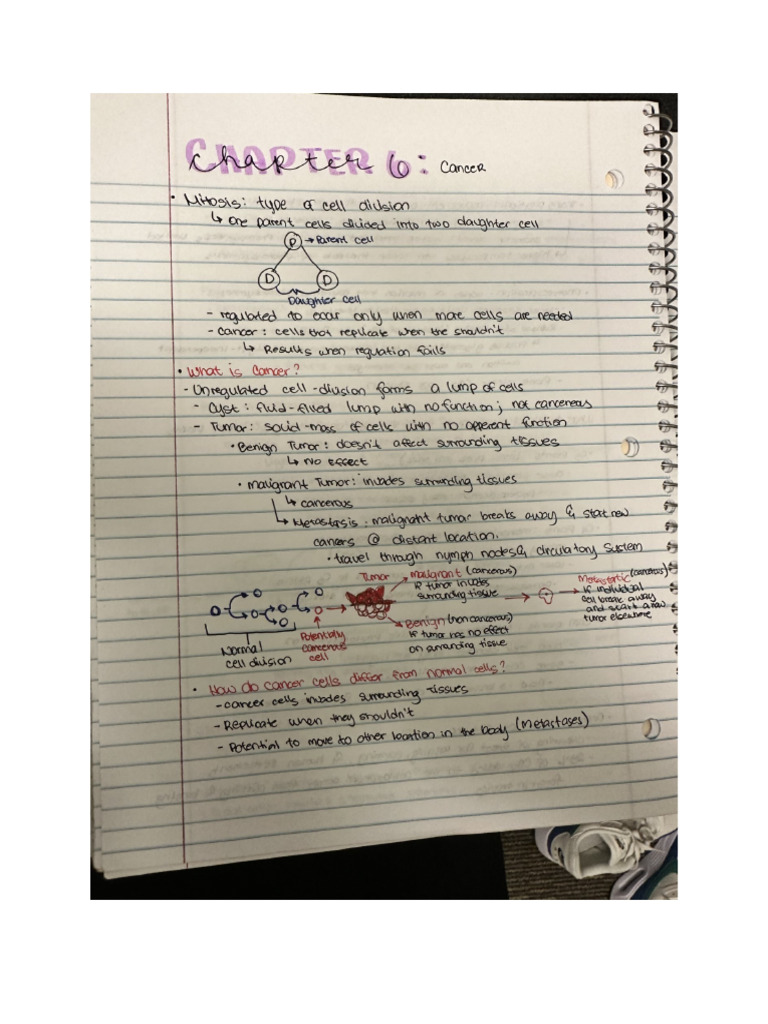 Chapter 6: Cancer
• Mitosis: type of cell division
↳ one parent cells divided into two daughter cell
P → Parent cell
D D
Daughter cell
- regulated to occur only when more cells are needed
- cancer: cells that replicate when the shouldn't
↳ Results when regulation fails
• What is Cancer?
- Unregulated cell-division forms a lump of cells
- Cyst: fluid-filled lump with no function; not cancereas
- Tumor: soild-mass of cells with no apperent function
• Benign Tumor: doesn't affect surrounding tissues
↳ NO Effect
• malignant Tumor: invades surrounding tissues
↳ cancerous
↳ Metastasis: malignant tumor breaks away & start new
cancers @ distant location.
• travel through nymph nodes & circulatory system
Tumor
Malignant (cancerous)
if tumor invades
surrounding tissue
Metastatic (cancerous)
if individual
cell break away
and start a new
tumor elsewhere
Benign (non cancerous)
if tumor has no effect
on surrounding tissue
Normal
cell division
Potentially
cancerous
cell
• How do cancer cells differ from normal cells?
- cancer cells invades surrounding tissues
- Replicate when they shouldn't
- Potential to move to other location in the body (metastases)